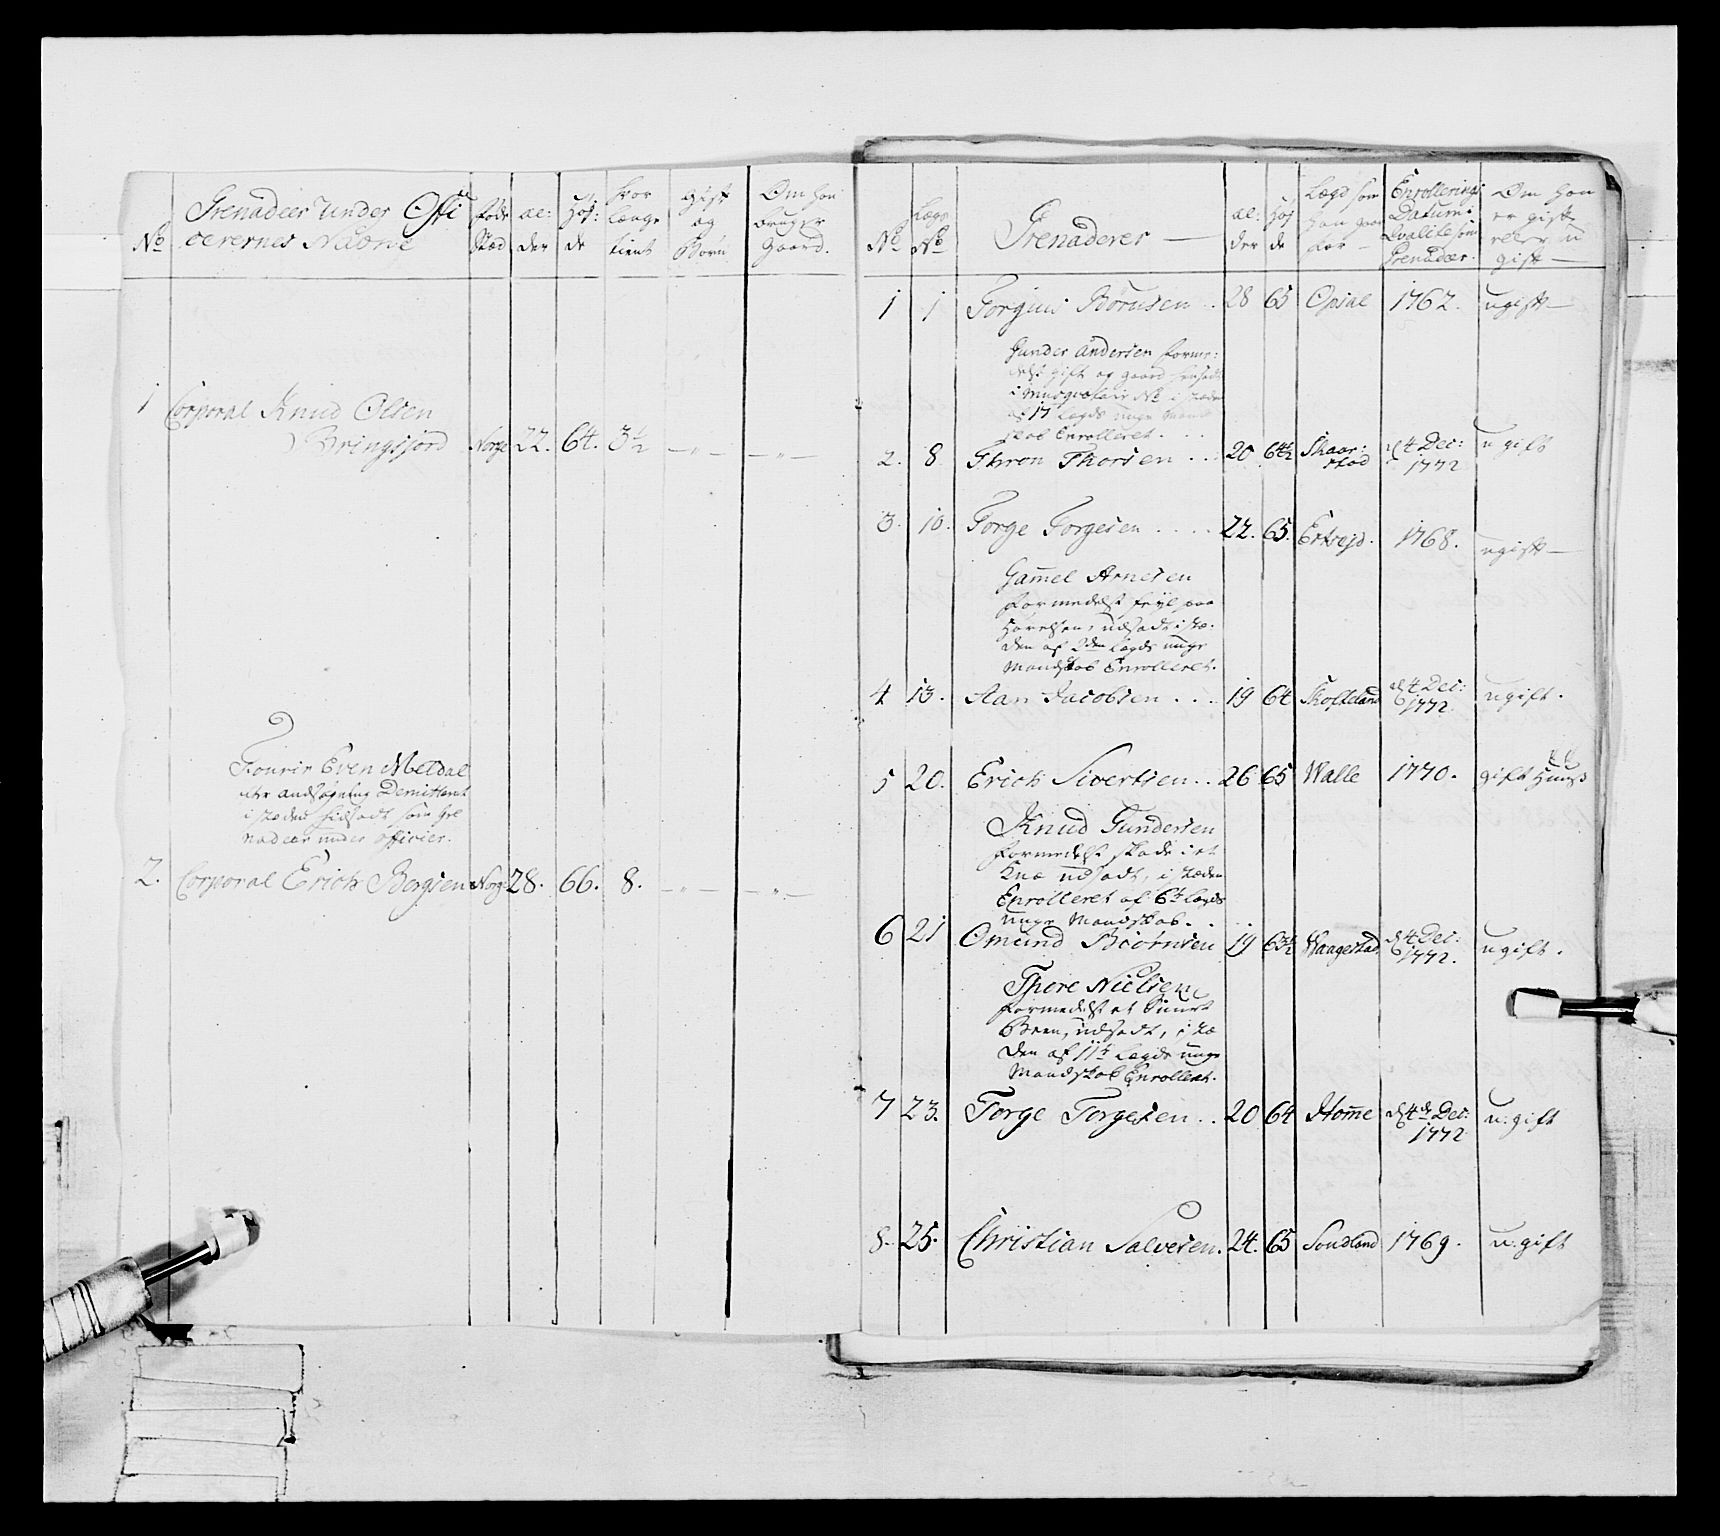 No
Grenadeer Under Offi
cerernes Navne
føde
stæd
al:
der
Høj:
de
hvor
længe
tient
gift
og
Børn
Om han
bruger
Gaard.
1
Corporal Knud Olsen
Bringsjord Norge 22. 64. 3½ — „ — — „ —
Fourir Even Meldal
efter andsøgning Demitteret
i stæden hidsadt som Gre
nadeer under officier.
2. Corporal Erich Bergsen Norge 28. 66. 8. — „ — — „ —
No
Lægs
No
Grenaderer —
al:
der
Høj
de
Lægd som
han gaar
for —
Enrollerings
Datum i
Qvalite som
Grenadeer.
Om han
er gift
eller u
gift —
1 1 Torgius Börusen . . 28 65 Opsal 1762. ugift —
Gunder Andersen forme:
delst gift og gaard hensadt
i Musqvetair No i stæden
af 17 Lægds unge Mand
skab Enrolleret. . . .
2. 8. Thron Thorsen . . . 20 64½ Skaar:
stad d 4 Dec:
1772 ugift
3. 10. Torge Torgesen . . . . 22. 65. Ertzejd. 1768. ugift —
Gam̄el Arnesen
formedelst feyl paa
Hörelsen, udsadt i stæ:
den af 2den Lægds unge
Mandskab Enrolleret.
4 13. Aan Jacobsen . . . 19 64 Skofteland d 4 Dec:
1772. ugift.
5 20. Erich Sivertsen . . 26 65 Walle 1770. gift Huuß
Knud Gundersen
formedelst skade i et
Knæ udsadt, i stæden
Enrolleret af 6te Lægds
unge Mandskab. . .
6 21 Omund Biörnsen 19 63½ Waagestad d 4 Dec:
1772. ugift.
Thore Nielsen
formedelst et Suurt
Been, udsadt, i stæ
den af 11te Lægds unge
Mandskab Enrolleret.
7 23. Torge Torgesen . . 20 64 Hom̄e d 4de Dec:
1772 u: gift
8. 25. Christian Salvesen. 24. 65 Sondland 1769. u: gift